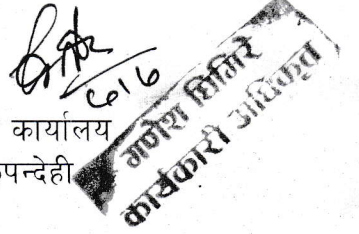 ६।६
कार्यालय
पन्देही
गणेश घिमिरे
कार्यकारी अधिकृत